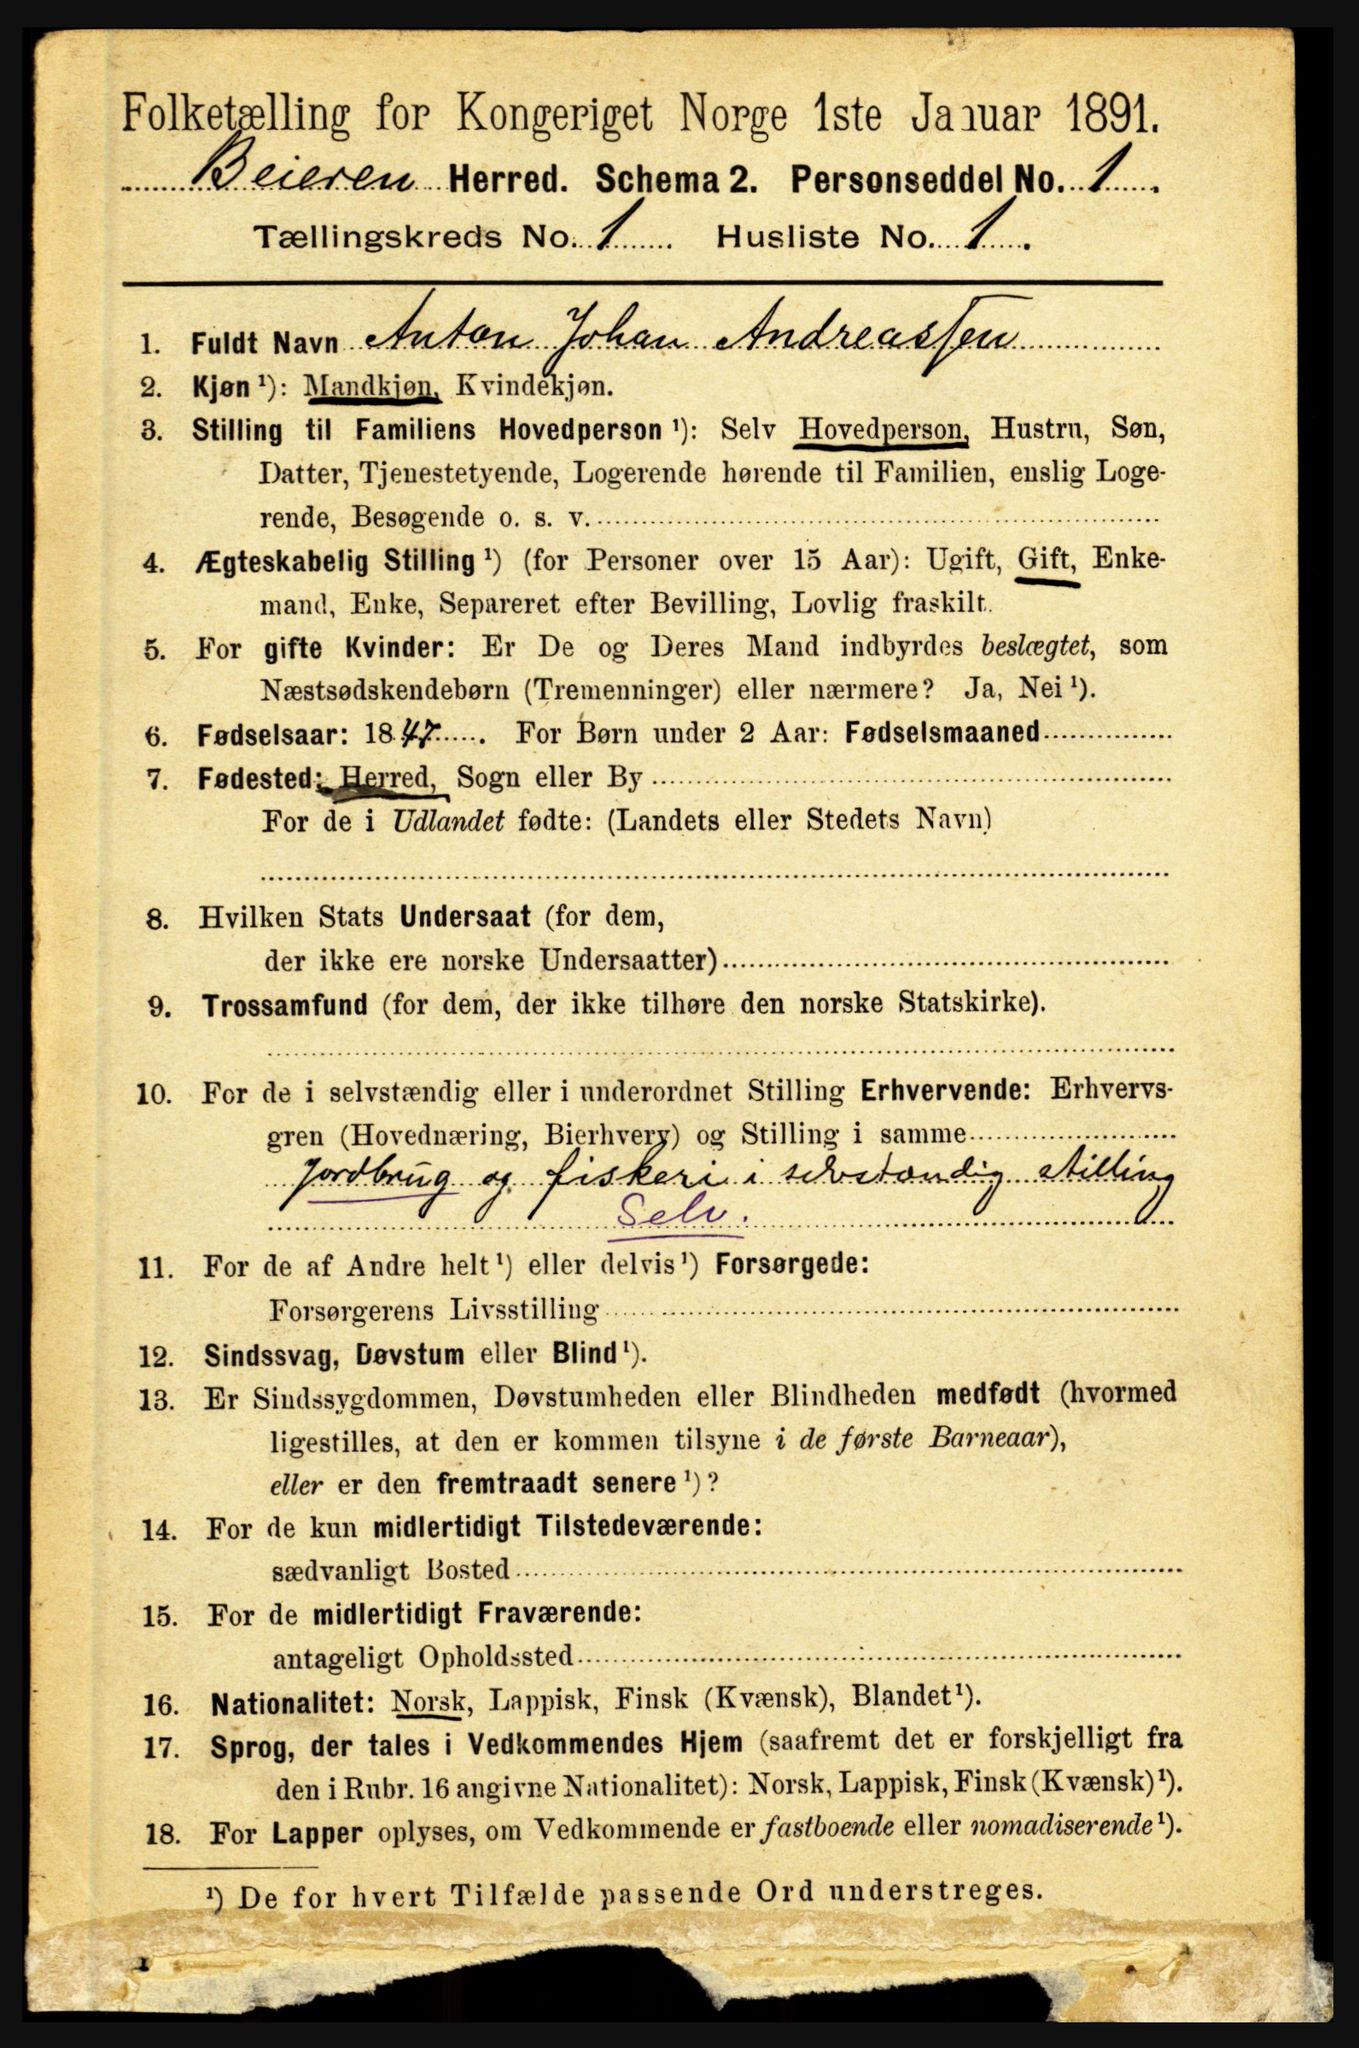 Folketælling for Kongeriget Norge 1ste Januar 1891.
Beieren Herred. Schema 2. Personseddel No. 1.
Tællingskreds No. 1. Husliste No. 1.
1. Fuldt Navn Anton Johan Andreassen
2. Kjøn ¹): Mandkjøn, Kvindekjøn.
3. Stilling til Familiens Hovedperson ¹): Selv Hovedperson, Hustru, Søn,
Datter, Tjenestetyende, Logerende hørende til Familien, enslig Loge-
rende, Besøgende o. s. v.
4. Ægteskabelig Stilling ¹) (for Personer over 15 Aar): Ugift, Gift, Enke-
mand, Enke, Separeret efter Bevilling, Lovlig fraskilt.
5. For gifte Kvinder: Er De og Deres Mand indbyrdes beslægtet, som
Næstsødskendebørn (Tremenninger) eller nærmere? Ja, Nei ¹).
6. Fødselsaar: 1847. For Børn under 2 Aar: Fødselsmaaned
7. Fødested: Herred, Sogn eller By
For de i Udlandet fødte: (Landets eller Stedets Navn)
8. Hvilken Stats Undersaat (for dem,
der ikke ere norske Undersaatter)
9. Trossamfund (for dem, der ikke tilhøre den norske Statskirke).
10. For de i selvstændig eller i underordnet Stilling Erhvervende: Erhvervs-
gren (Hovednæring, Bierhverv) og Stilling i samme
Jordbrug og fiskeri i selvstændig stilling
Selv.
11. For de af Andre helt ¹) eller delvis ¹) Forsørgede:
Forsørgerens Livsstilling
12. Sindssvag, Døvstum eller Blind ¹).
13. Er Sindssygdommen, Døvstumheden eller Blindheden medfødt (hvormed
ligestilles, at den er kommen tilsyne i de første Barneaar),
eller er den fremtraadt senere ¹)?
14. For de kun midlertidigt Tilstedeværende:
sædvanligt Bosted
15. For de midlertidigt Fraværende:
antageligt Opholdssted
16. Nationalitet: Norsk, Lappisk, Finsk (Kvænsk), Blandet ¹).
17. Sprog, der tales i Vedkommendes Hjem (saafremt det er forskjelligt fra
den i Rubr. 16 angivne Nationalitet): Norsk, Lappisk, Finsk (Kvænsk) ¹).
18. For Lapper oplyses, om Vedkommende er fastboende eller nomadiserende ¹).
¹) De for hvert Tilfælde passende Ord understreges.